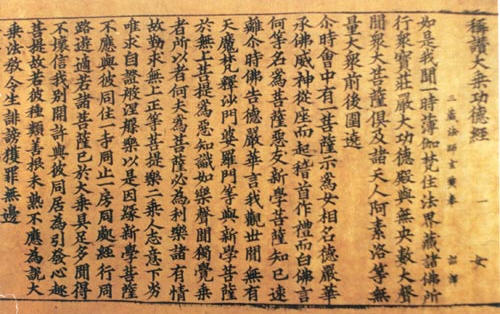 稱讚大乘功德經 一 女
三藏法師玄奘奉 詔譯
如是我聞一時薄伽梵住法界藏諸佛所
行眾寶莊嚴大功德殿與無央數大聲
聞眾大菩薩俱及諸天人阿素洛等無
量大眾前後圍遶
尒時會中有一菩薩示為女相名德嚴華
承佛威神從座而起稽首作禮而白佛言
何等名為菩薩惡友新學菩薩知已速
離尒時佛告德嚴華言我觀世間無有
天魔梵釋沙門婆羅門等與新學菩薩
於無上菩提為惡知識如樂聲聞獨覺乘
者所以者何夫為菩薩必為利樂諸有情
故勤求無上正等菩提樂二乘人志意下劣
唯求自證般涅槃樂以是因緣新學菩薩
不應與彼同住一寺同止一房同處經行同
路遊適若諸菩薩已於大乘具足多聞得
不壞信我別開許與彼同居為引發心趣
菩提故若彼種類善根未熟不應為說大
乘法教令生誹謗獲罪無邊